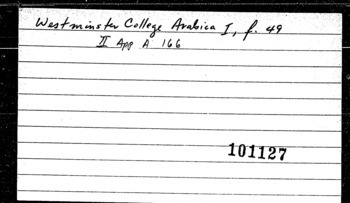 Westminster College Arabica I, f. 49
II App A 166
101127